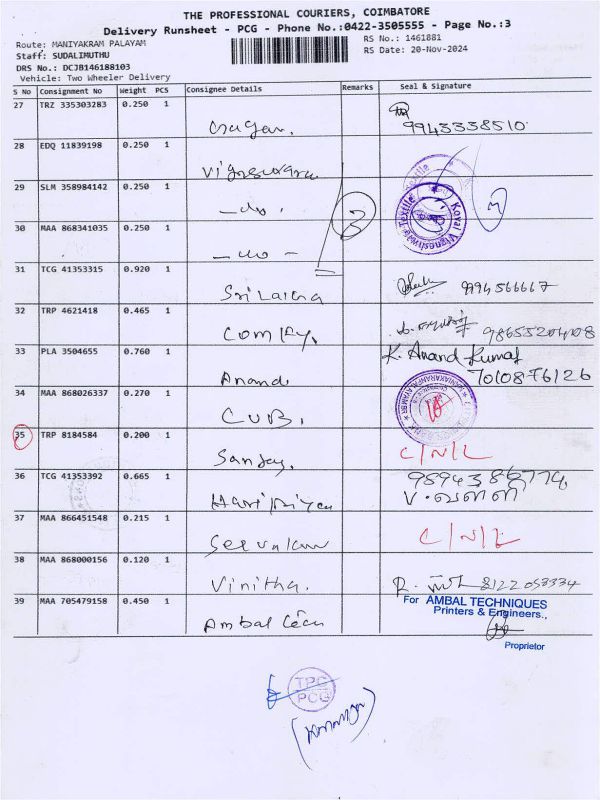 THE PROFESSIONAL COURIERS, COIMBATORE
Delivery Runsheet - PCG - Phone No.:0422-3505555 - Page No.:3
Route: MANIYAKRAM PALAYAM
RS No.: 1461881
Staff: SUDALIMUTHU
RS Date: 20-Nov-2024
DRS No.: DCJB146188103
Vehicle: Two Wheeler Delivery
S No Consignment No Weight PCS Consignee Details Remarks Seal & Signature
27 TRZ 335303283 0.250 1
9943338510
28 EDQ 11839198 0.250 1
Vigneswara
29 SLM 358984142 0.250 1
- do.
Koval Vigneshwara Textile
30 MAA 868341035 0.250 1
- do -
31 TCG 41353315 0.920 1
Sri Latha
9994566667
32 TRP 4621418 0.465 1
98655204408
33 PLA 3504655 0.760 1
Anand
K. Anand Kumar
7010876126
34 MAA 868026337 0.270 1
CUB.
35 TRP 8184584 0.200 1
Sanjay.
C/N/L
36 TCG 41353392 0.665 1
Haripriya
V. வள்ளி
37 MAA 866451548 0.215 1
C/N/L
38 MAA 868000156 0.120 1
Vinitha.
8122053334
39 MAA 705479158 0.450 1
Ambal Tech
For AMBAL TECHNIQUES
Printers & Engineers.,
Proprietor
TPC
PCG